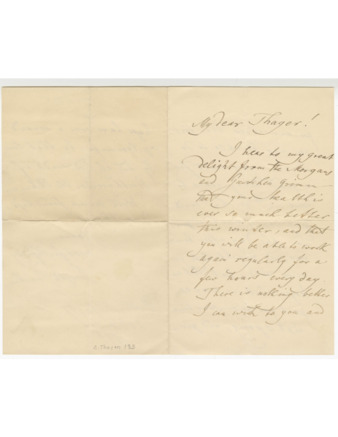 My dear Thayer!
I hear to my great
delight from the Morgans
and
that your health is
ever so much better
this winter, and that
you will be able to work
again regularly for a
few hours every day
There is nothing better
I can wish to you and